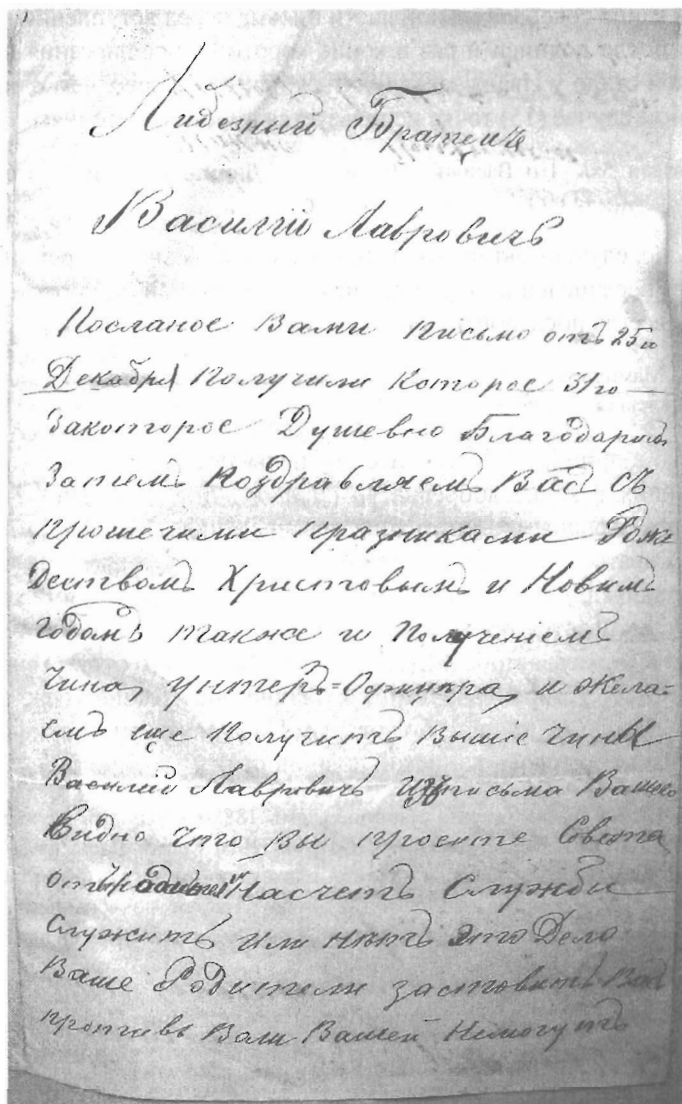 Либезний Братецъ
Василій Лавровичъ
Посланое Вами письмо отъ 25го
Декабря Получили Которое 31го
Закоторое Душевно Благодаримъ
Затемъ Поздравляемъ Васъ Съ
прошечими празниками Рожe
Деством Христовымъ и Новимъ
годомъ также и Полученіемъ
Чина, унтеръ=Офицера, и жела=
емъ еще Получить Вышіе Чины
Василій Лавровичъ Изписьма Вашего
Видно что вы просите Совета
отъ Насчетъ Службы
Служить или нетъ это Дело
Ваше Родители заставить Вас
противъ Воли Вашей Немогутъ